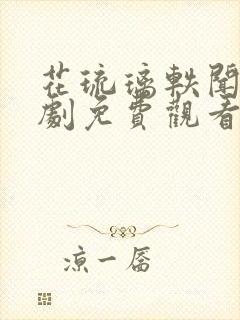 花琉璃軼聞
劇免費觀看
涼一孱